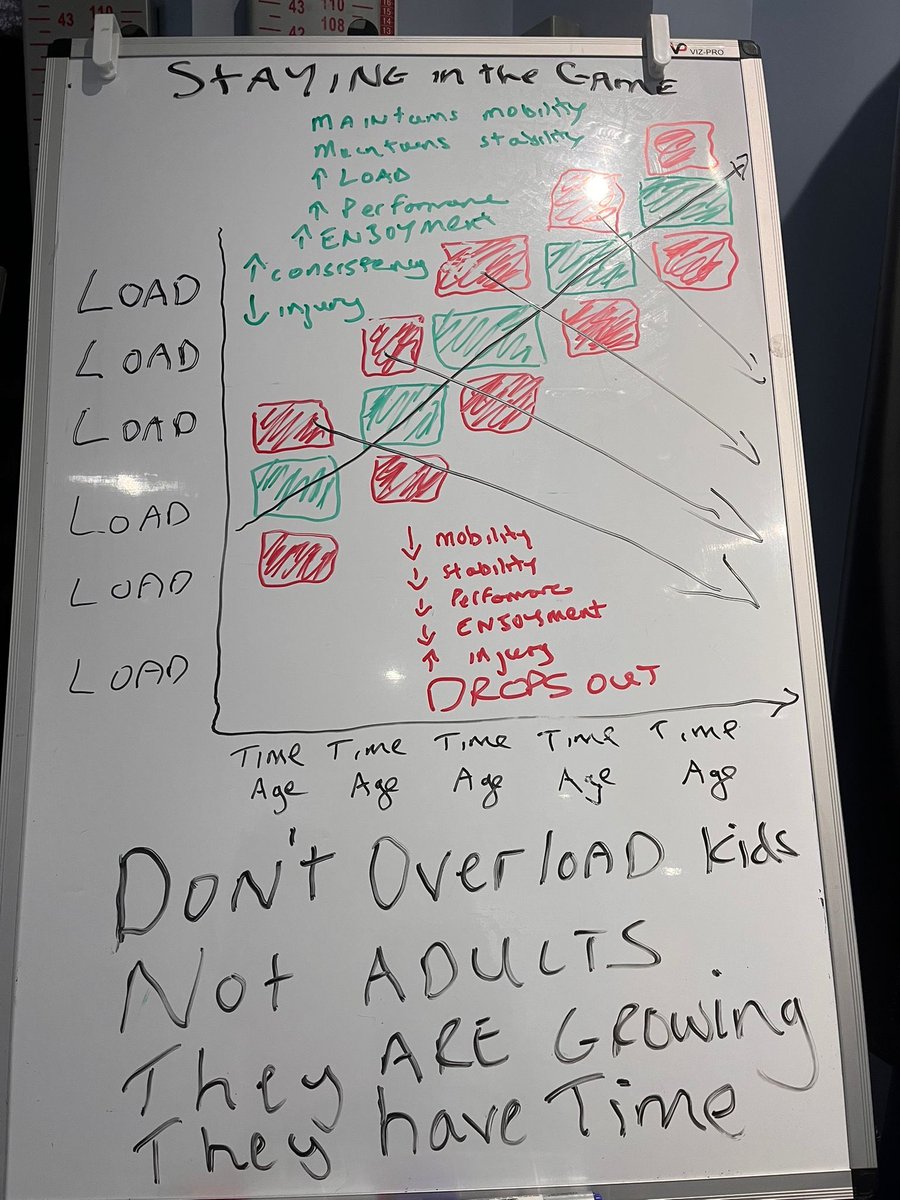 43 110
43 110
42 108
16
15
14
13
VIZ-PRO
STAYING in the GAME
MAINTAINS mobility
Maintains stability
↑ LOAD
↑ Performance
↑ ENJOYMENT
↑ consistency
↓ injury
LOAD
LOAD
LOAD
LOAD
LOAD
LOAD
↓ mobility
↓ stability
↓ Performance
↓ ENJOYMENT
↑ injury
DROPS OUT
Time Time Time Time Time
Age Age Age Age Age
DON'T OverLOAD kids
Not ADULTS.
They ARE GROWing
They have Time